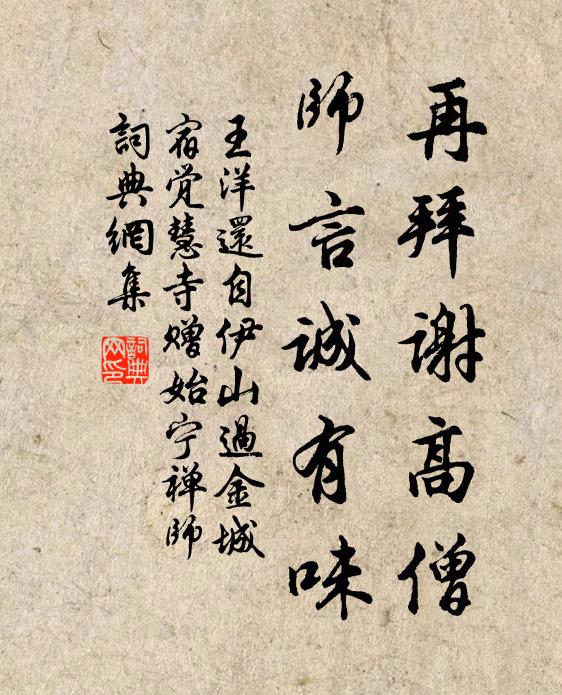 再拜谢高僧
師言诚有味
王洋還自伊山過金城
宿觉慧寺赠始宁禅师
詞典網集
詞典网印